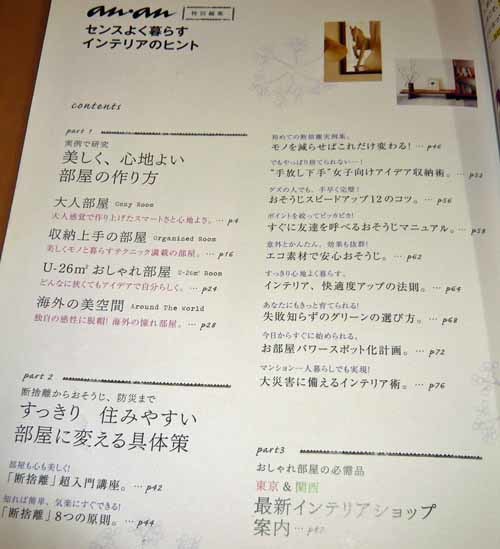 an・an 特別編集
センスよく暮らす
インテリアのヒント
contents
part 1
実例で研究
美しく、心地よい
部屋の作り方
大人部屋 Cozy Room
大人感覚で作り上げたスマートさと心地よさ。… p4
収納上手の部屋 Organized Room
美しくモノと暮らすテクニック満載の部屋。… p16
U-26㎡おしゃれ部屋 U-26㎡ Room
どんなに狭くてもアイデアで自分らしく。… p24
海外の美空間 Around The World
独自の感性に脱帽! 海外の憧れ部屋。… p28
part 2
断捨離からおそうじ、防災まで
すっきり 住みやすい
部屋に変える具体策
部屋も心も美しく!
「断捨離」超入門講座。… p42
知れば簡単、気楽にすぐできる!
「断捨離」8つの原則。… p44
初めての断捨離実例集。
モノを減らせばこれだけ変わる! … p46
でもやっぱり捨てられない…!
“手放し下手”女子向けアイデア収納術。… p52
グズの人でも、手早く完璧!
おそうじスピードアップ12のコツ。… p56
ポイントを絞ってピッカピカ!
すぐに友達を呼べるおそうじマニュアル。… p58
意外とかんたん、効果も抜群!
エコ素材で安心おそうじ。… p62
すっきり心地よく暮らす。
インテリア、快適度アップの法則。… p64
あなたにもきっと育てられる!
失敗知らずのグリーンの選び方。… p68
今日からすぐに始められる、
お部屋パワースポット化計画。… p72
マンション一人暮らしでも実現!
大災害に備えるインテリア術。… p76
part3
おしゃれ部屋の必需品
東京 & 関西
最新インテリアショップ
案内 …